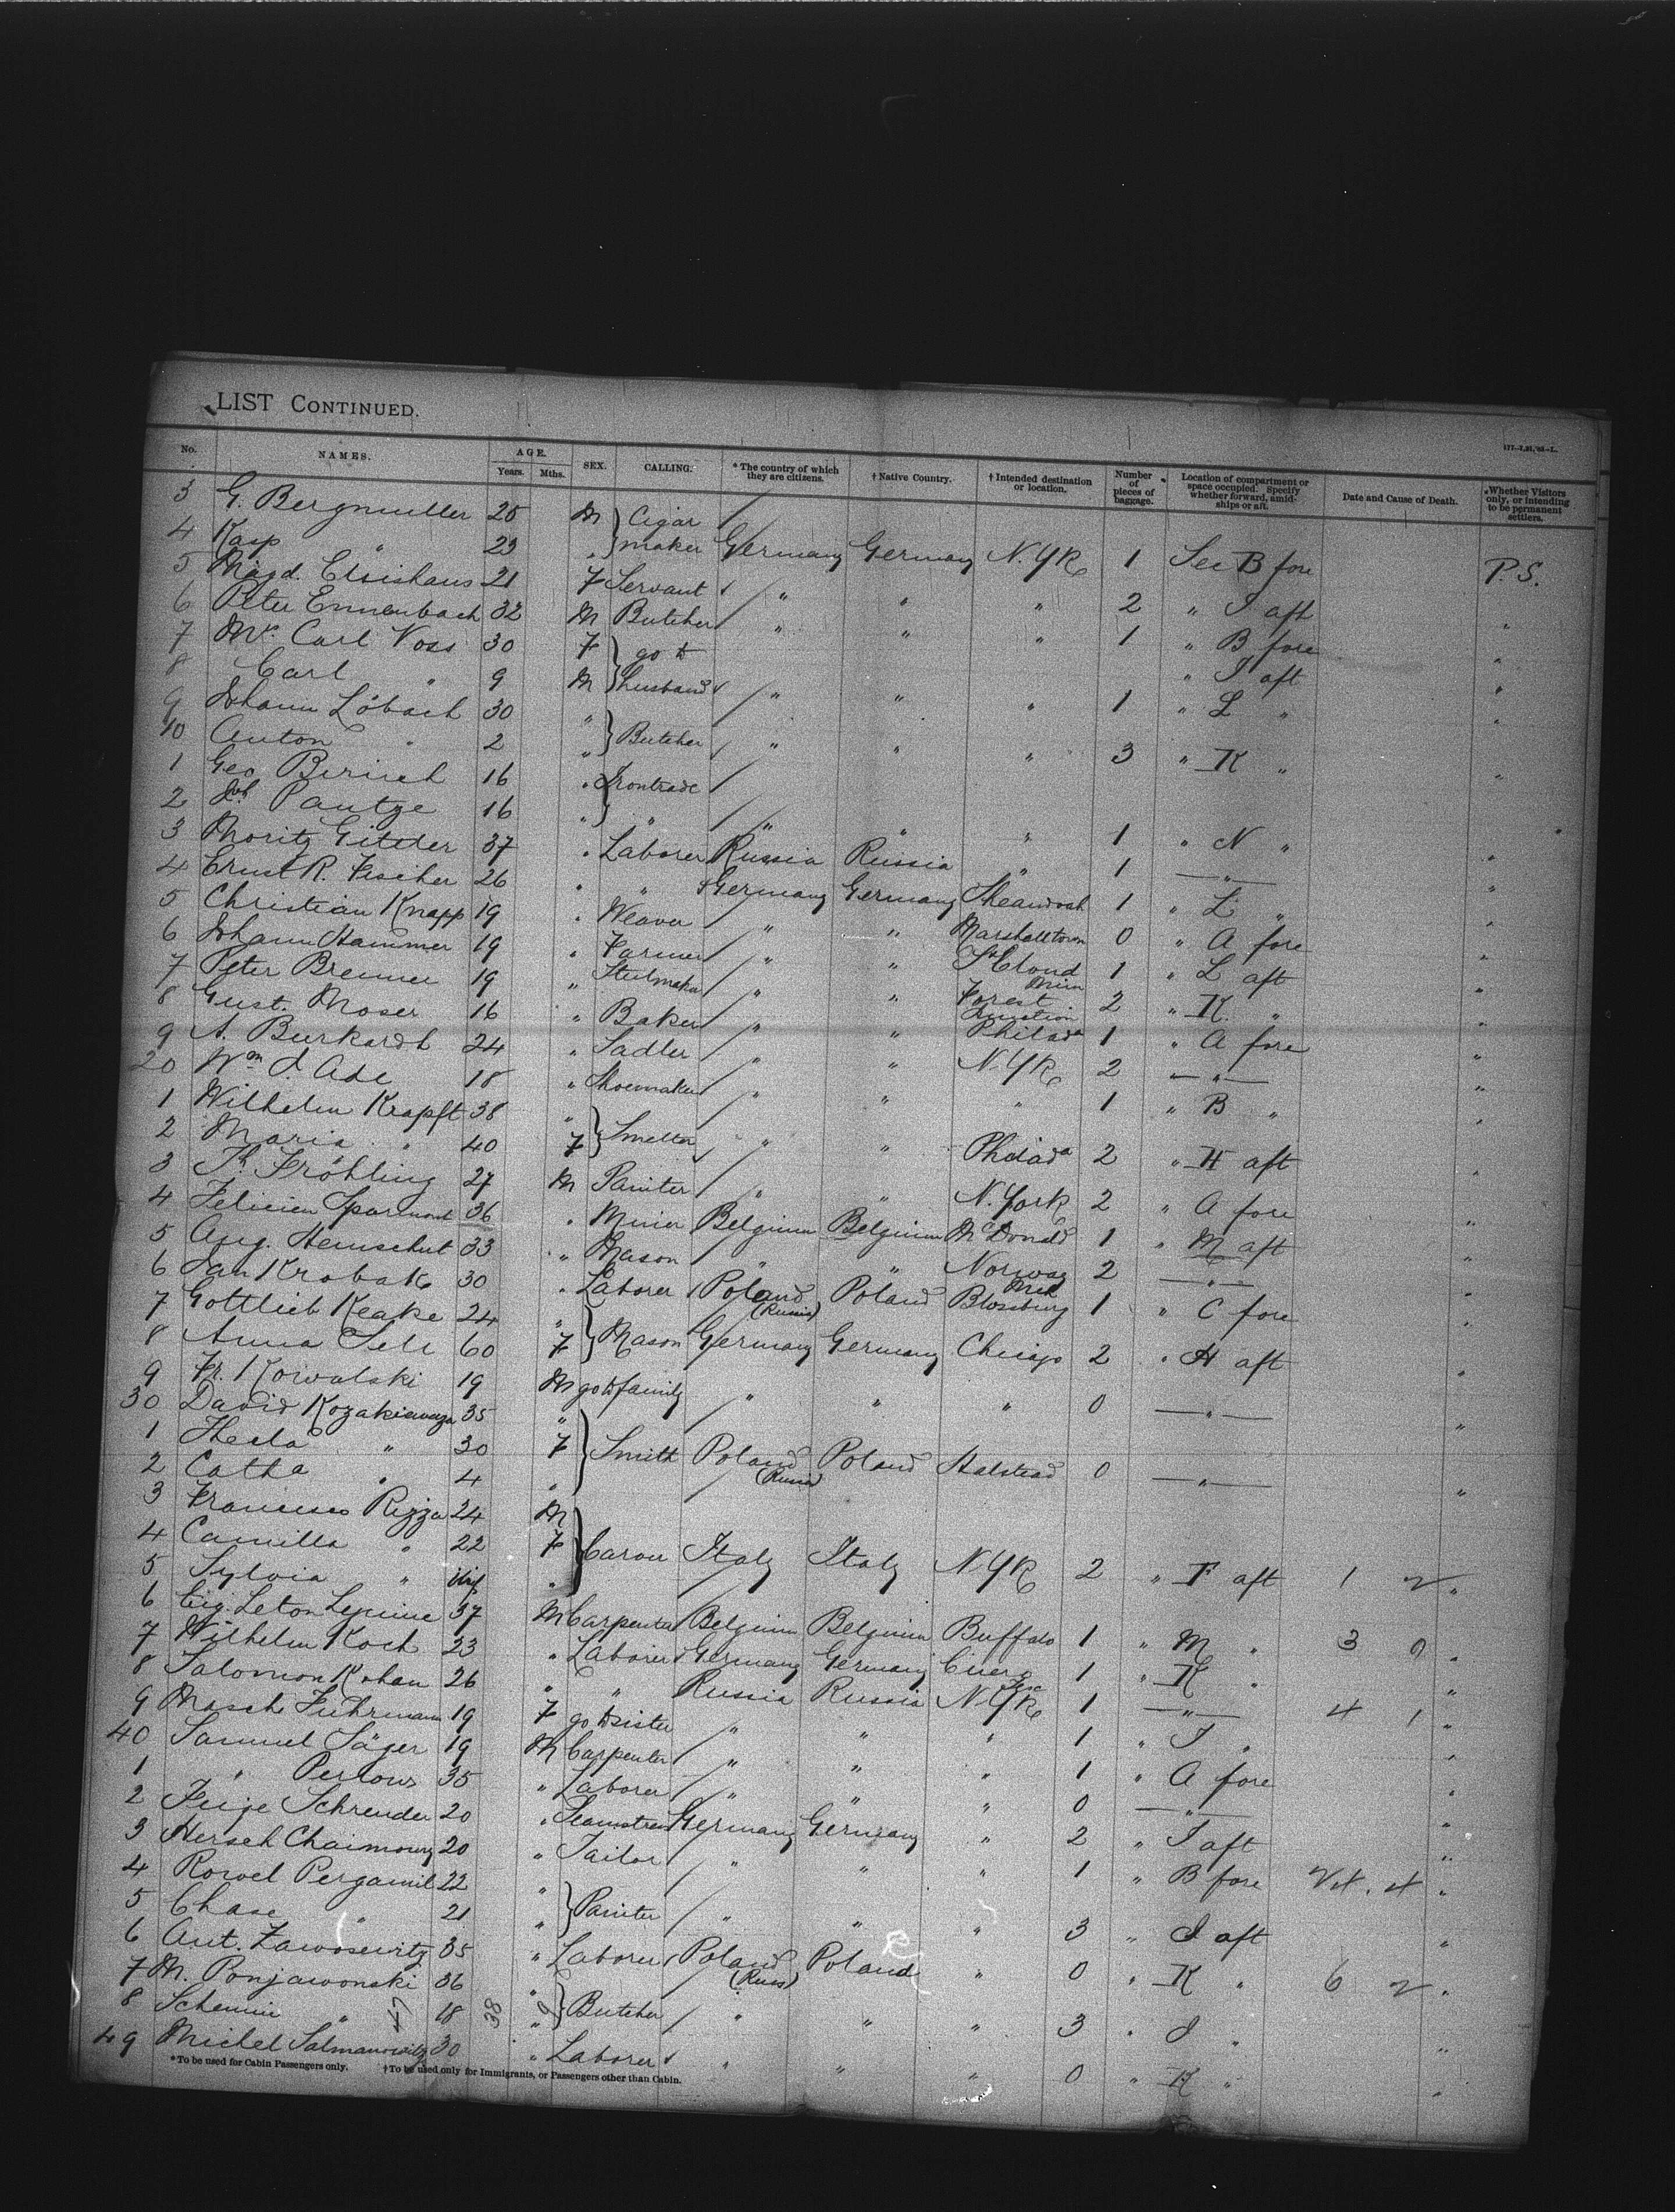 LIST CONTINUED.
No. NAMES. AGE. Years. Mths. SEX. CALLING. *The country of which they are citizens. †Native Country. †Intended destination or location. Number of pieces of baggage. Location of compartment or space occupied. Specify whether forward, amidships or aft. Date and Cause of Death. Whether Visitors only, or intending to be permanent settlers.
3 G. Bergmuller 25 M Cigar
4 Kasp " 23 " maker Germany Germany N.YK 1 See B fore P.S.
5 Magd. 21 F Servant " " " 2 " I aft "
6 Peter Ennenbach 32 M Butcher " " " 1 " B fore "
7 Mrs. Carl Voss 30 F go to " I aft "
8 Carl " 9 M husband " " " 1 " L " "
9 Johann Löbach 30 "
10 Anton " 2 " Butcher " " " 3 " K " "
1 Geo 16 " Irontrade
2 Pautze 16 " " " " " 1 " N " "
3 Moritz 37 " Laborer Russia Russia " 1 — " — "
4 Ernst R. Fischer 26 " " Germany Germany 1 " L " "
5 Christian Knapp 19 " Weaver " " Marshalltown 0 " A fore "
6 Johann Hammer 19 " Farmer " " St Cloud Minn 1 " L aft "
7 Peter Bremer 19 " Steelmaker " " Forest Junction 2 " K. " "
8 Gust. Moser 16 " Baker " " Philada 1 " A fore "
9 A. Burkardt 24 " Sadler " " N.YK 2 — " — "
20 Wm J. Ade 18 " Shoemaker " " " 1 " B " "
1 Wilhelm Krapft 38 "
2 Maria " 40 F Smelter " " Philada 2 " H aft "
3 Th. Fröhling 27 M Painter " " N. York 2 " A fore "
4 Felicien 36 " Miner Belgium Belgium McDonald 1 " M aft "
5 Aug. Hemschut 33 " Mason " " Norway Mich 2 — " — "
6 Jan Krobak 30 " Laborer Poland (Russia) Poland Blossburg 1 " C fore "
7 Gottlieb Keake 24 "
8 Anna 60 F Mason Germany Germany Chicago 2 " H aft "
9 Fr. Kowalski 19 M go to family " " " 0 — " — "
30 David 35 "
1 " 30 F Smith Poland (Russia) Poland Halstead 0 — " — "
2 Catha " 4 "
3 Francesco Rizza 24 M
4 Camilla " 22 F Italy Italy N.YK 2 " F aft 1 2 "
5 Sylvia " inf "
6 37 M Carpenter Belgium Belgium Buffalo 1 " M " 3 9 "
7 Wilhelm Koch 23 " Laborer Germany Germany 1 " K " "
8 Salomon Kohan 26 " " Russia Russia N.YK 1 — " — 4 1 "
9 Fuhrmann 19 F go to sister " " " 1 " I " "
40 Samuel Säger 19 M Carpenter " " " 1 " A fore "
1 " Perlows 35 " Laborer " " " 0 — " — "
2 Feige Schreuder 20 " Seamstress Germany Germany " 2 " I aft "
3 Hersch 20 " Tailor " " " 1 " B fore "
4 Rowel Pergamit 22 "
5 Chase " 21 " Painter " " " 3 " I aft "
6 Ant. Zawosewitz 35 " Laborer Poland (Russ) Poland " 0 " K " 6 2 "
7 M. Ponjawonski 36 "
8 " 18 38 " Butcher " " " 3 " I " "
49 Michel Salmanowitz 30 " Laborer " " " 0 " K " "
*To be used for Cabin Passengers only. †To be used only for Immigrants, or Passengers other than Cabin.